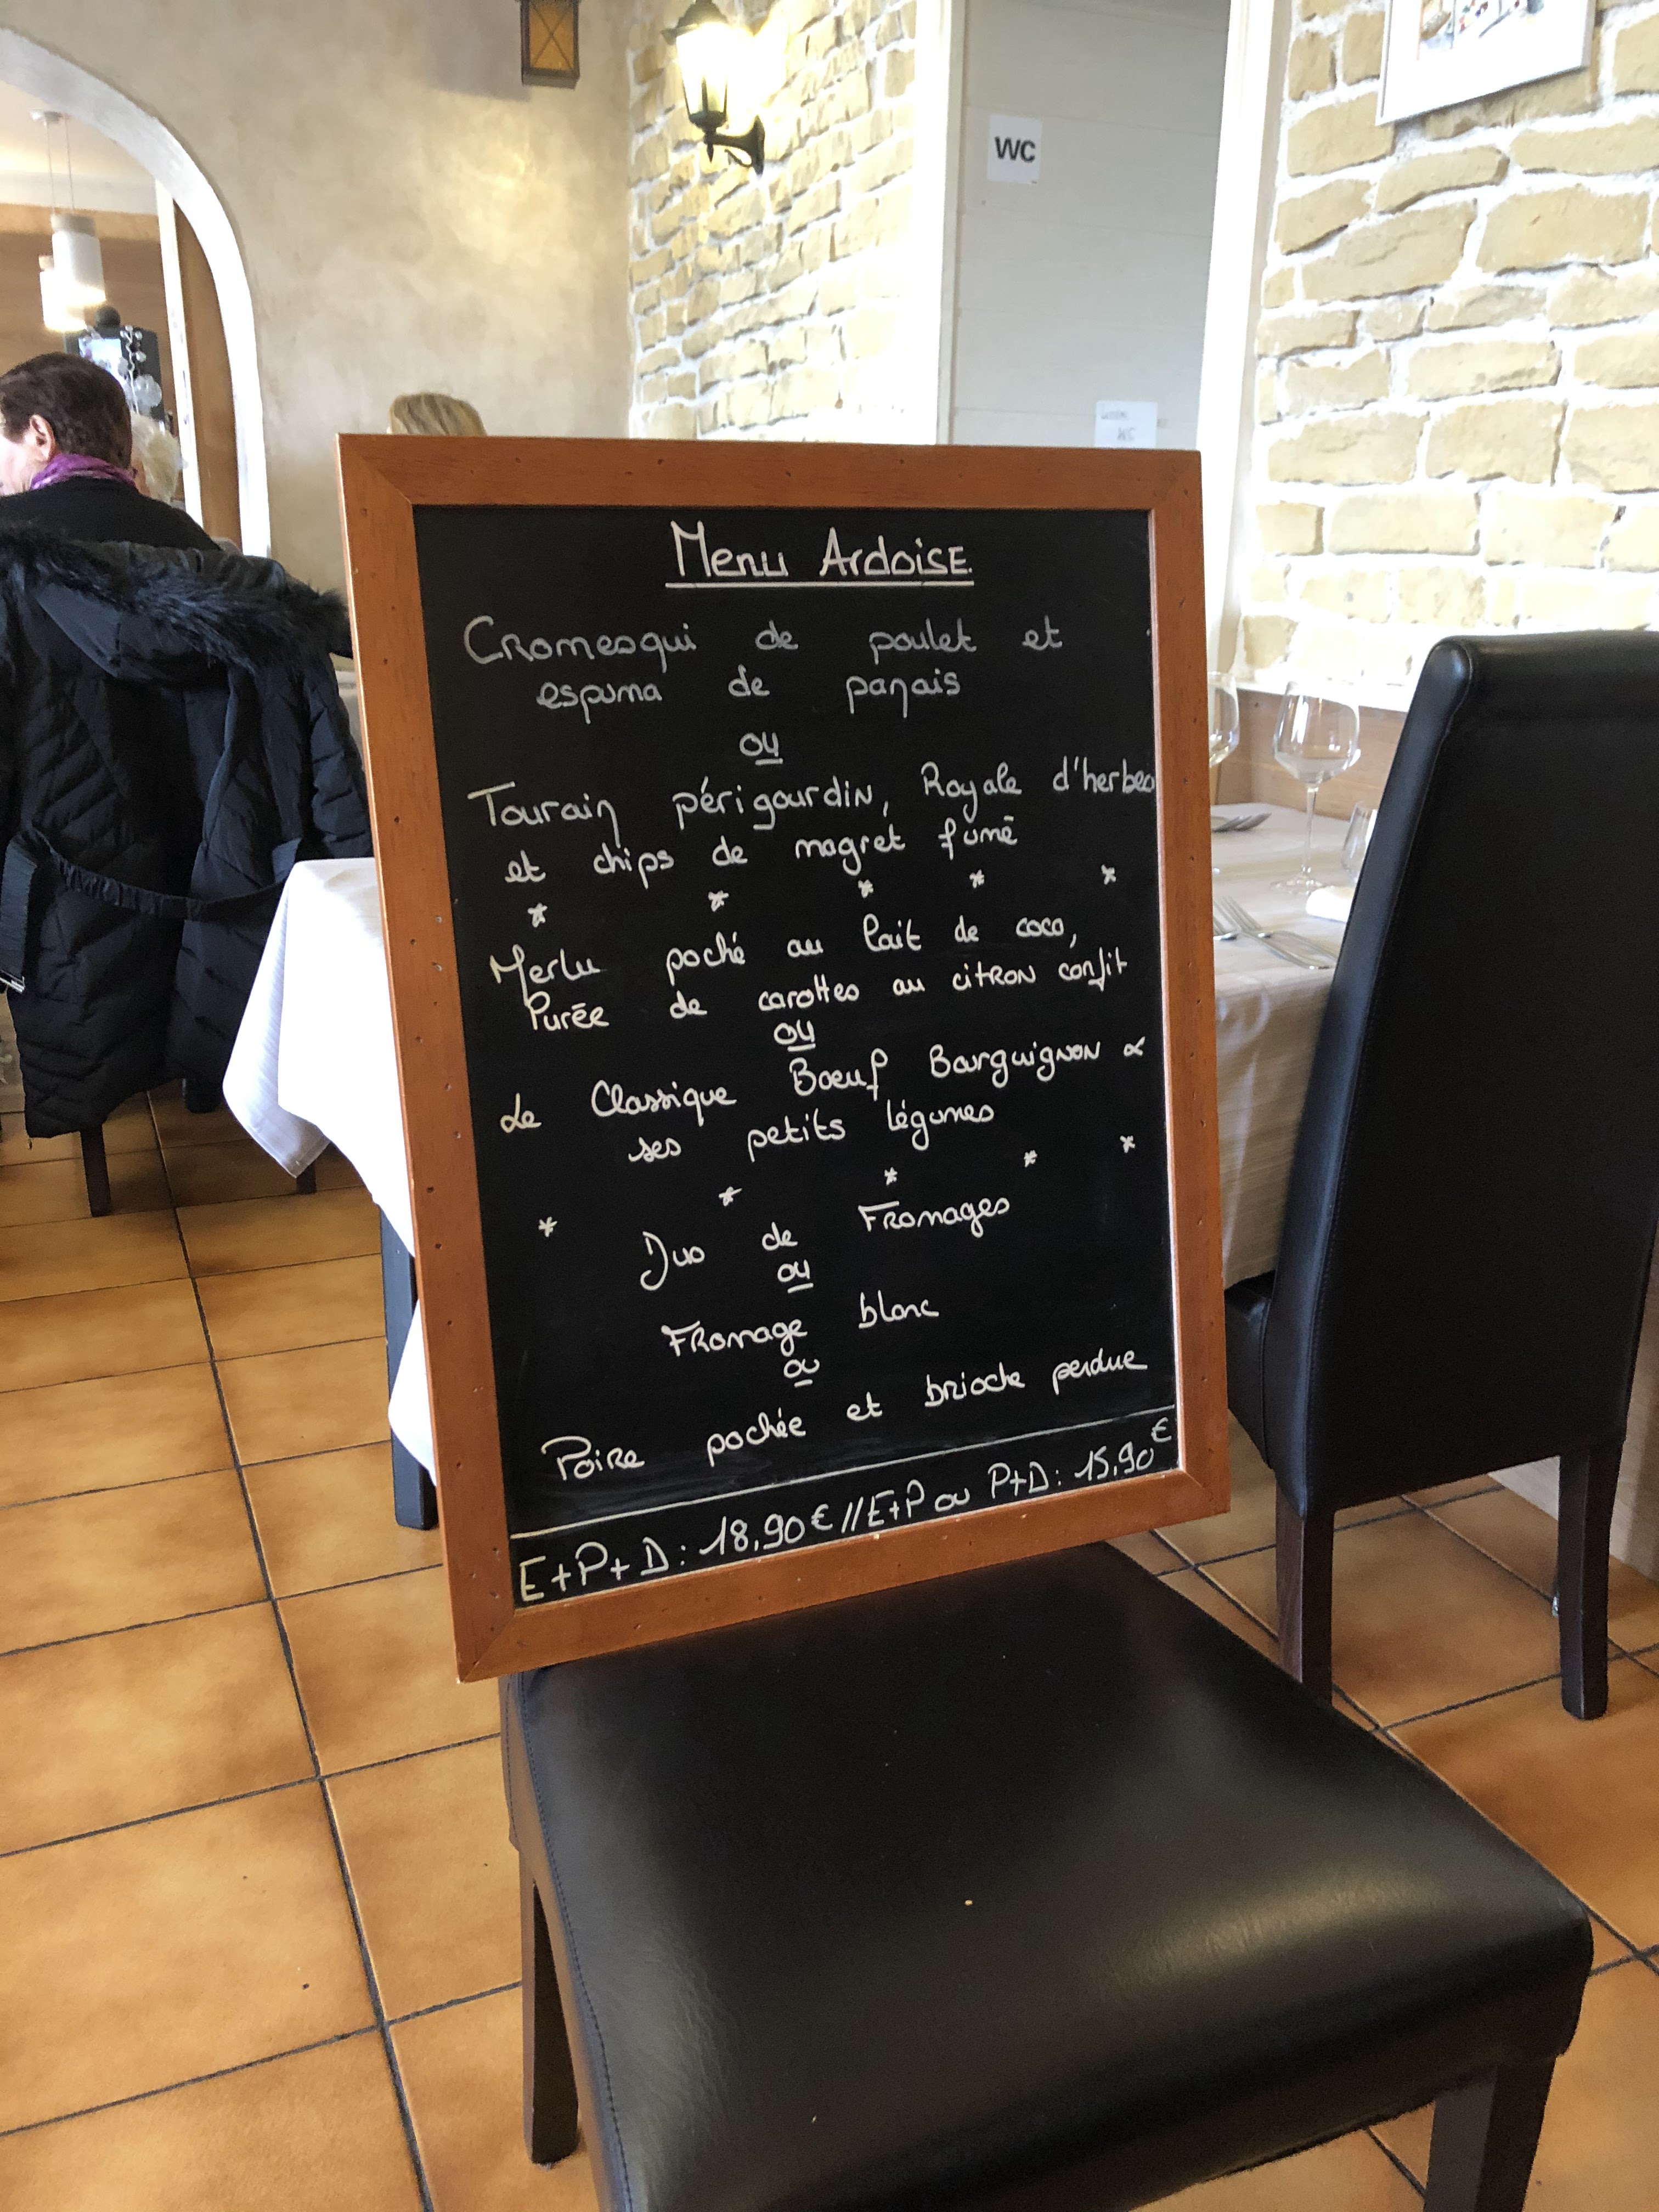 WC
WC
Menu Ardoise
Cromesqui de poulet et
espuma de panais
ou
Tourain périgourdin, Royale d'herbes
et chips de magret fumé
* * * * *
Merlu poché au lait de coco,
Purée de carottes au citron confit
ou
Le Classique Boeuf Bourguignon &
ses petits légumes
* * * * *
Duo de Fromages
ou
Fromage blanc
ou
Poire pochée et brioche perdue
E+P+D: 18,90€ // E+P ou P+D: 15,90€